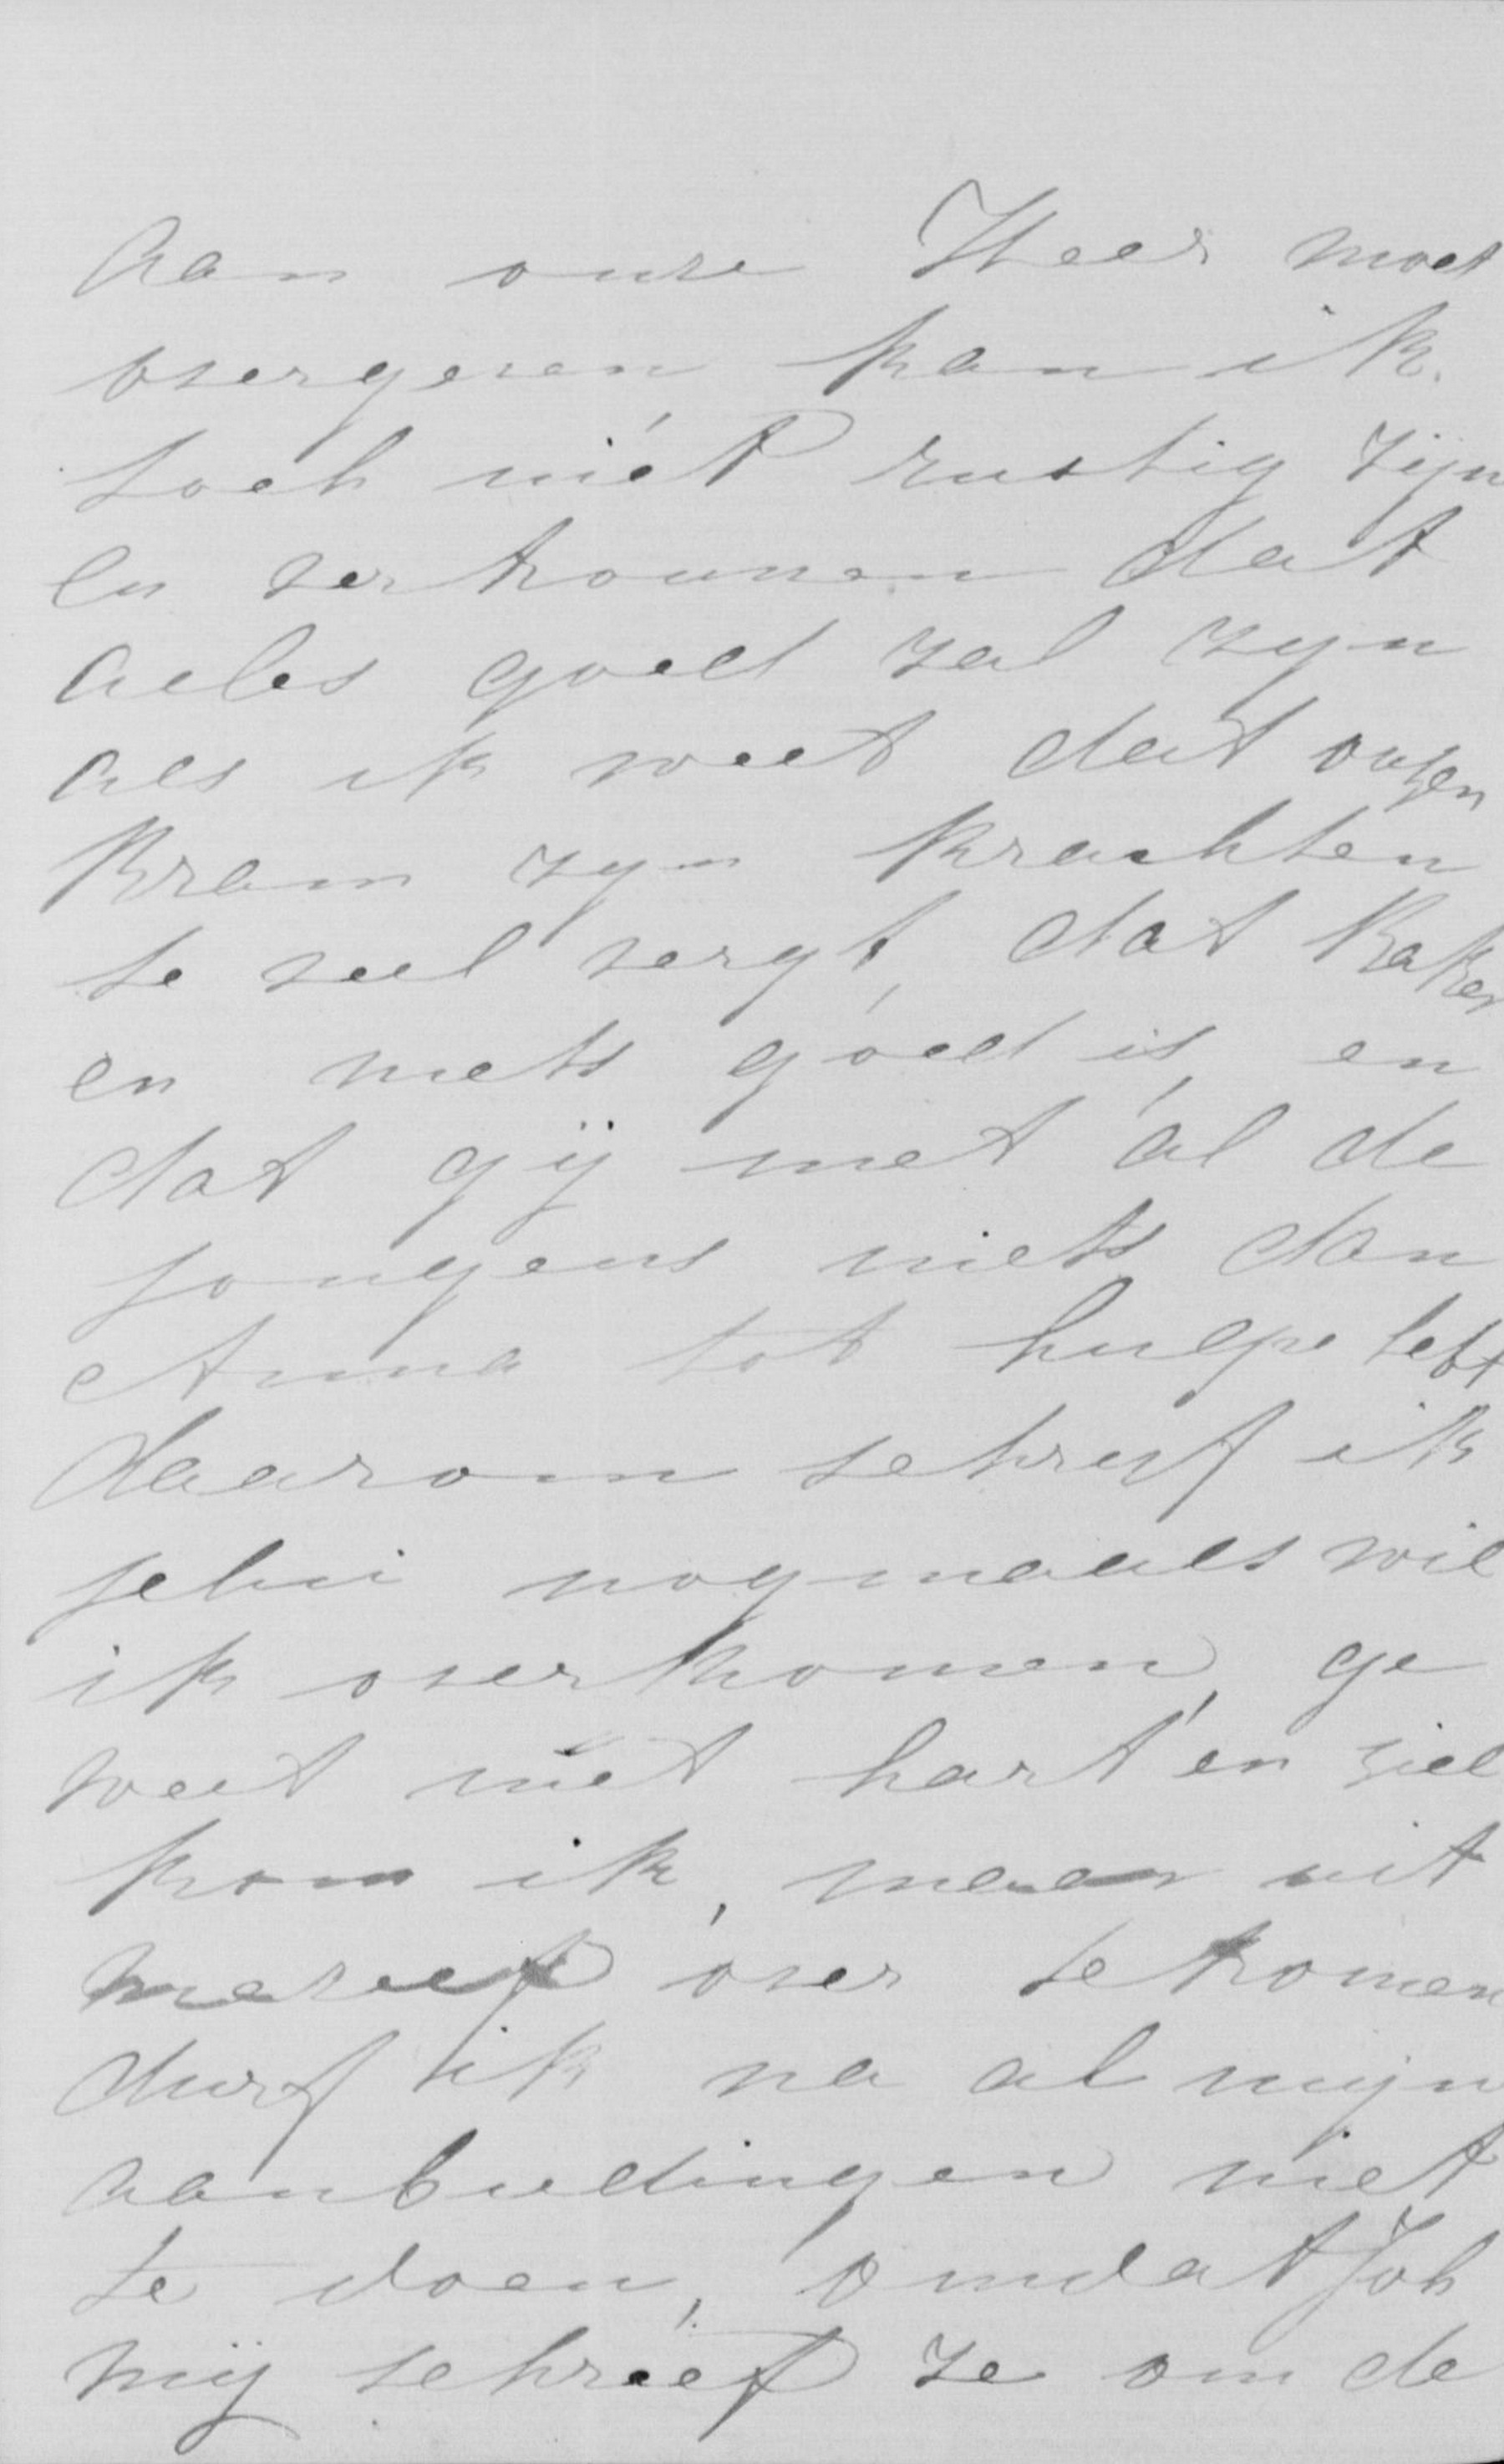 aan onze Heer moet
overgeven kan ik
toch niet rustig zijn
en vertrouwen dat
alles goed zal zyn
als ik weet dat onzen
Bram zyn krachten
te veel vergt, dat Baker
en niets goed is, en
dat gij met al de
jongens niets dan
Anna tot hulpe hebt
daarom schreef ik
nogmaals wil
ik overkomen, ge
weet met hart en ziel
kom ik, maar uit
mezelf over te komen
durf ik na al mijn
aanbiedingen niet
te doen, omdat Joh
mij schreef ze om de